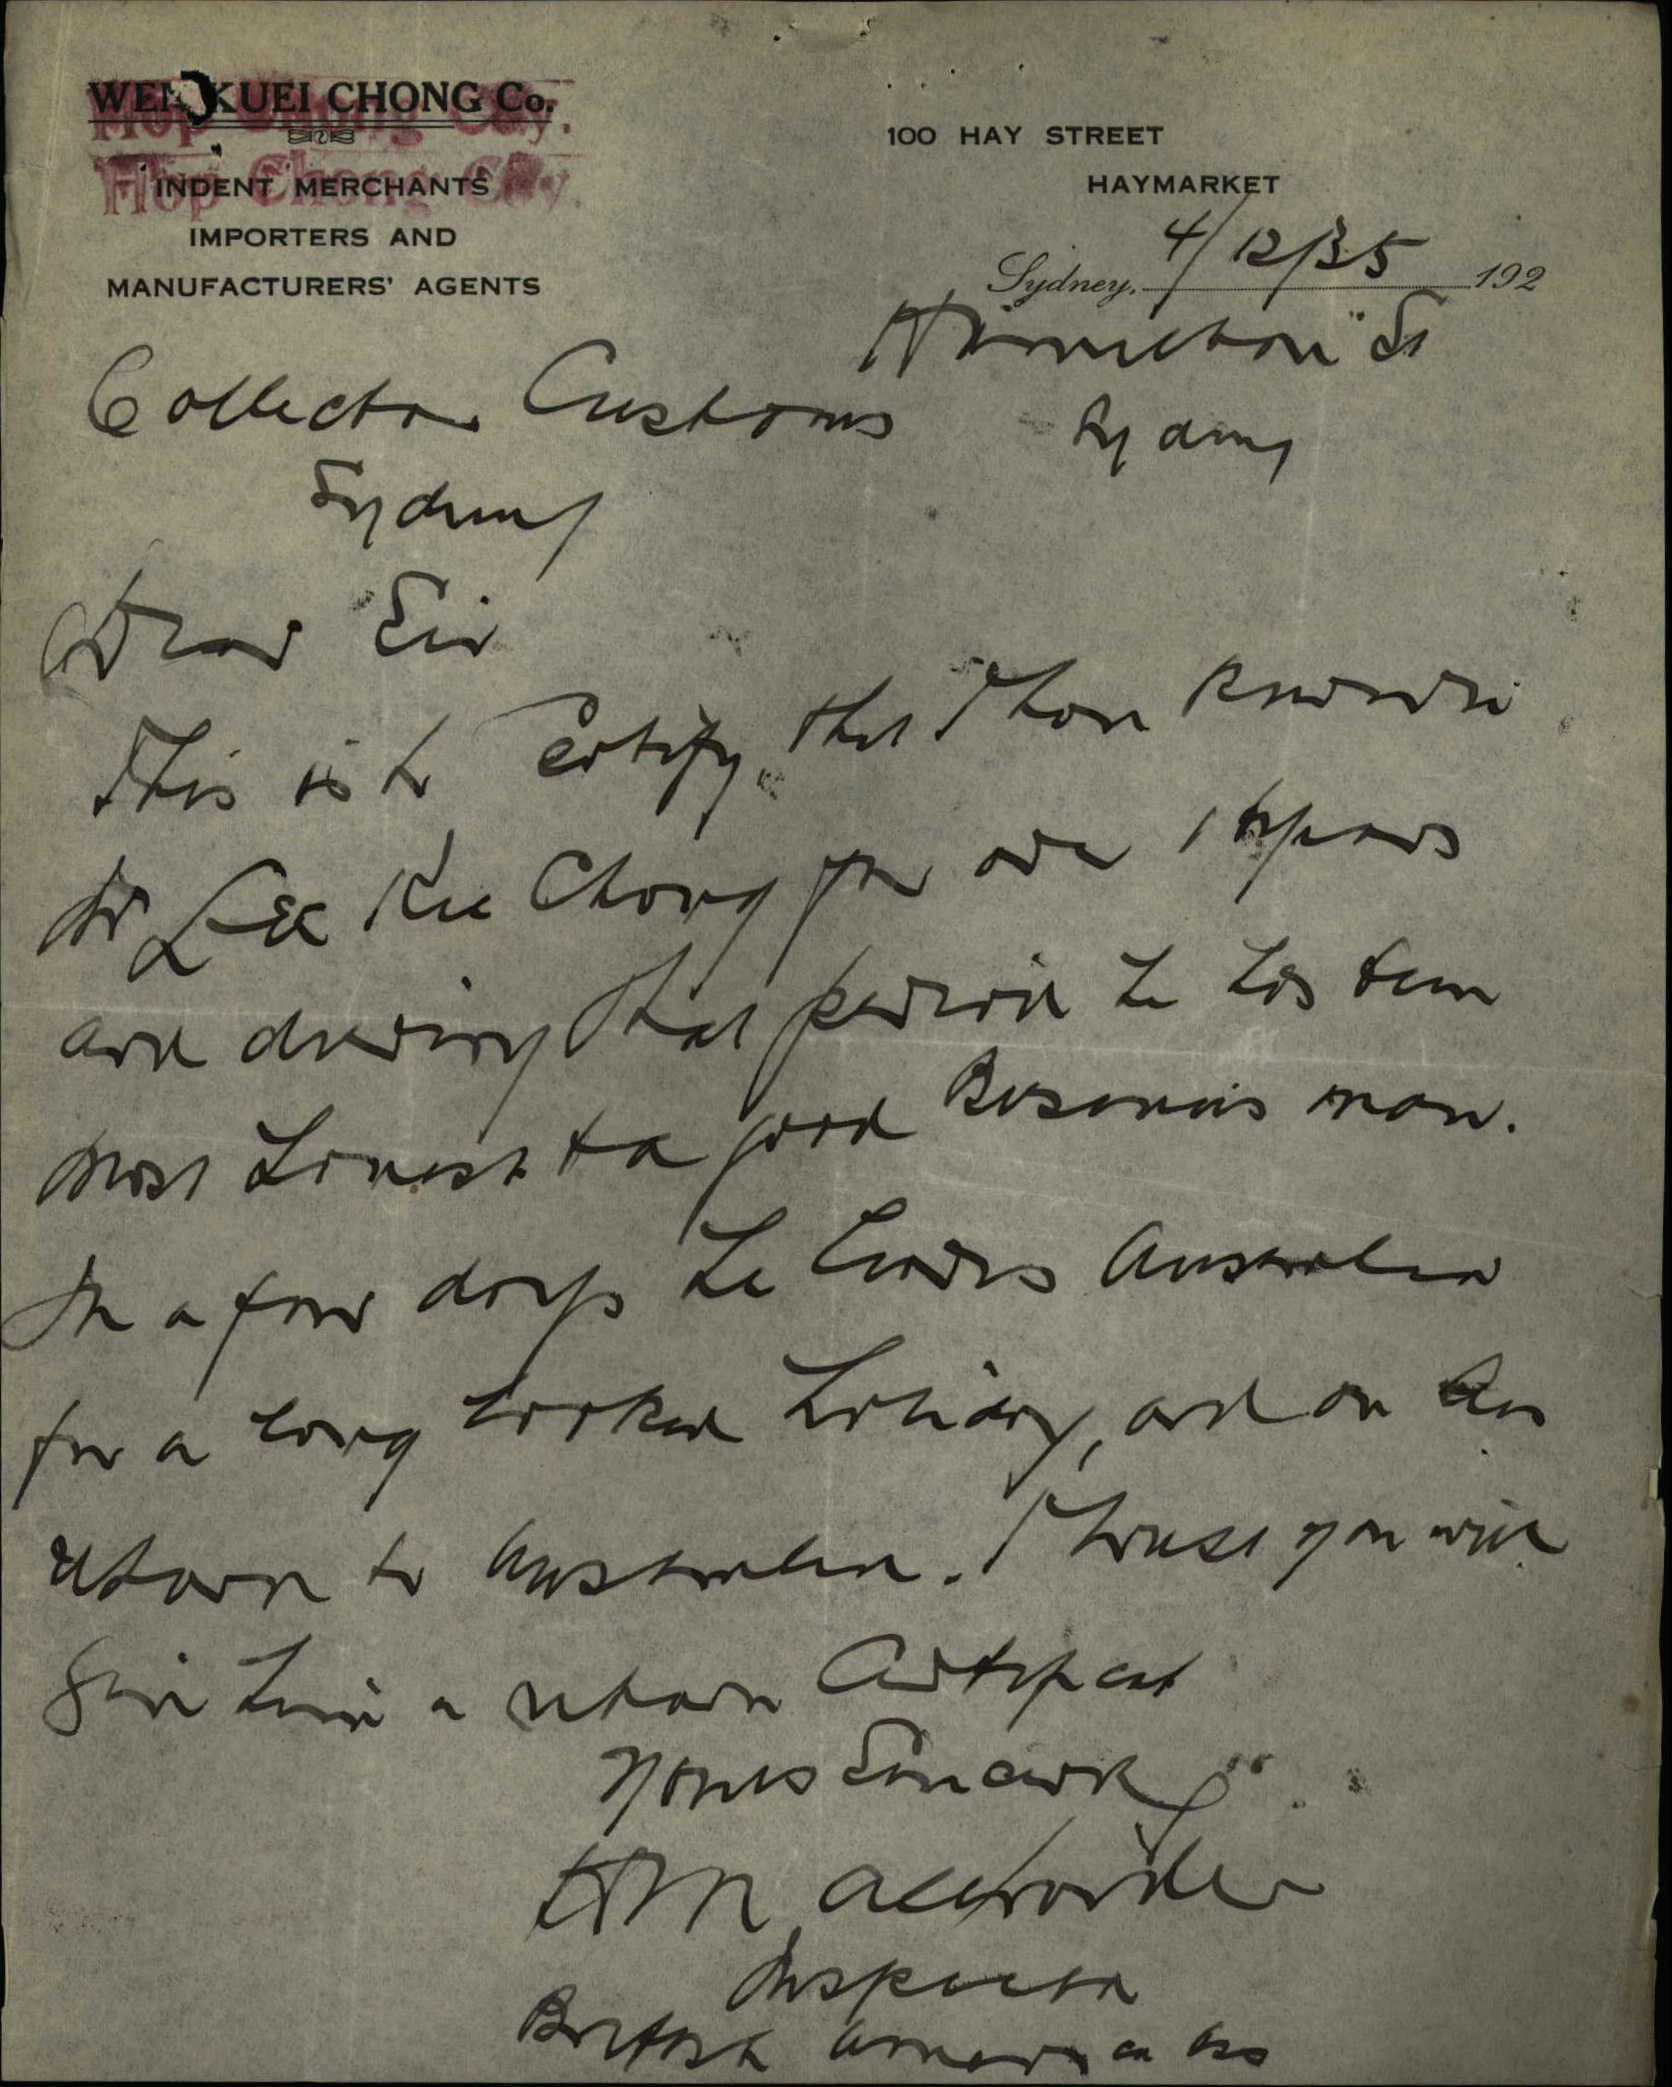 WEN KUEI CHONG Co.
Hop Chong Coy.
Hop Chong Coy.
INDENT MERCHANTS
IMPORTERS AND
MANUFACTURERS' AGENTS
100 HAY STREET
HAYMARKET
Sydney, 4/12/35 192
Hamilton St
Sydney
Collector Customs
Sydney
Dear Sir
This is to Certify that I have known
Mr Lee Kee Chong for over years
and during that period he has been
most honest & a good Business man.
In a few days he leaves Australia
for a long looked holiday, and on his
return to Australia. I trust you will
give him a return
Yours Sincerely
Alexander
Inspector
British American